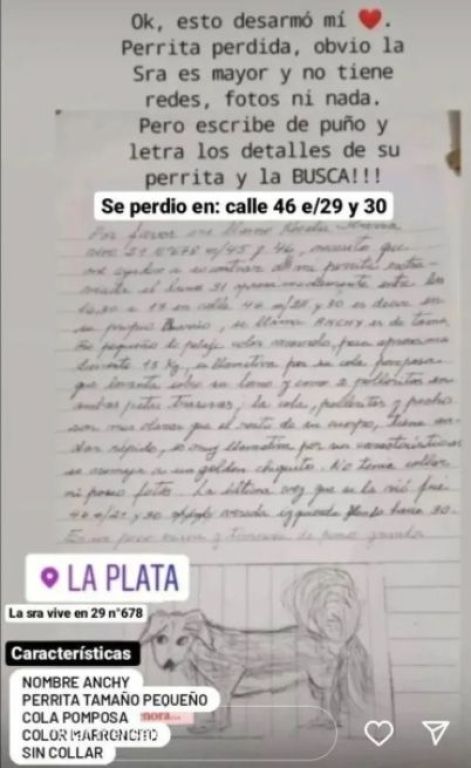 Ok, esto desarmó mí ❤️.
Perrita perdida, obvio la
Sra es mayor y no tiene
redes, fotos ni nada.
Pero escribe de puño y
letra los detalles de su
perrita y la BUSCA!!!
Se perdio en: calle 46 e/29 y 30
Por favor me llamo
vivo 29 n°678 e/45 y 46, necesito que
me ayuden a encontrar a mi perrita
el lunes 31 aproximadamente entre las
16,30 a 17 en calle 46 e/29 y 30 es decir en
mi propio Barrio, se llama ANCHY es de tama
ño pequeño de pelaje color marrón, pesa aproxima
damente 13 Kg, es llamativa por su cola pomposa
que levanta sobre su lomo y como 2 polleritas en
ambas patas traseras; la cola, polleritas y pecho
son mas claras que el resto de su cuerpo, tiene an
dar rápido, es muy llamativa por sus características
se asemeja a un golden chiquito. No tenía collar
ni poseo fotos. La última vez que se la vió fue
46 e/29 y 30 vereda izquierda hacia 30.
LA PLATA
La sra vive en 29 n°678
Características
NOMBRE ANCHY
PERRITA TAMAÑO PEQUEÑO
COLA POMPOSA
COLOR MARRONCITO
SIN COLLAR